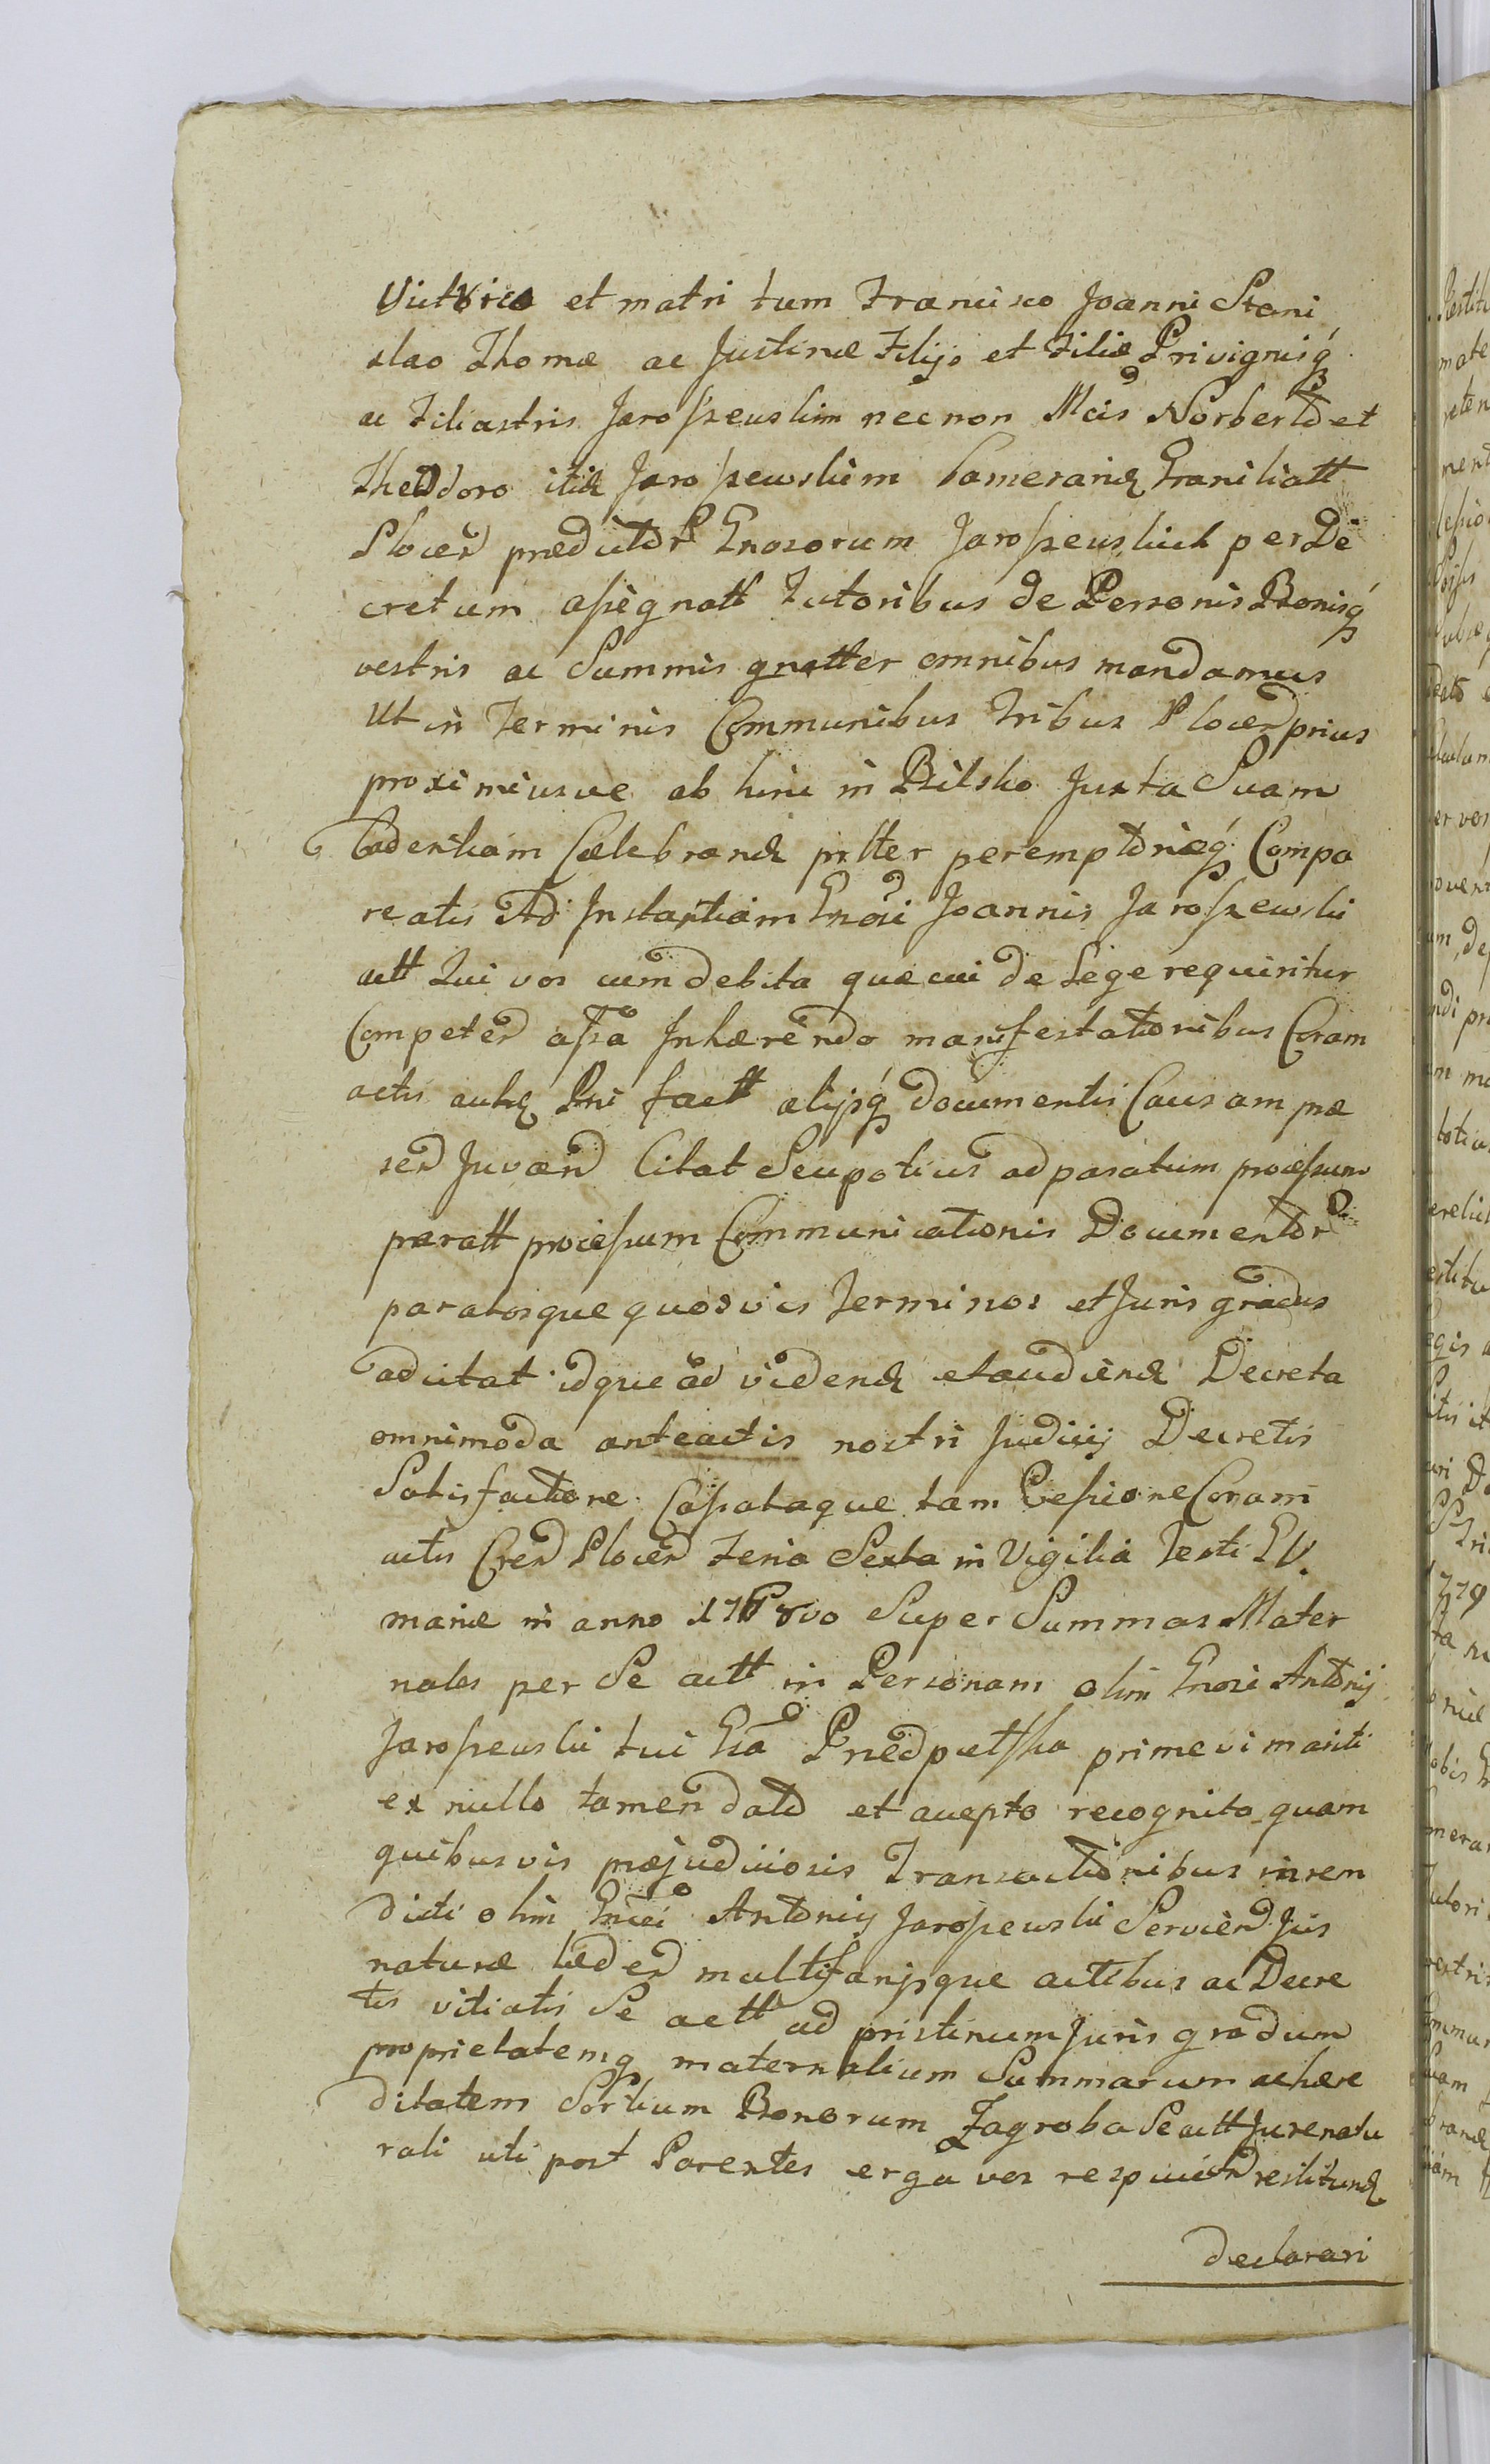 Vitrico et matri tum Francisco Joanni Stani
slao Thomæ ac Justinæ Filijs et Filiæ Privignisq́
ac Filiastris Jaroszewskim necnon Mcis Norberto et
Theodoro itid Jaroszewskim Camerariid Graniliatt
Plocen prædictor Gnosorum Jaroszewskich per De
cretum assignatt Tutoribus de Personis Bonisq́
vestris ac Summis gnatter omnibus mandamus
Ut in Terminis Communibus Tribus Plocen prius
proximiusve ab hinc in Bilsko Juxta Suam
Cadentiam Celebrand psltter peremptorieq́ Compa
reatis Ad Instantiam Gnosi Joannis Jaroszewski
actt Qui vos cum debita quæ cui de Lege requiritur
Competen assa Inhærendo manifestationibus Coram
actis auth Pni factt alijsq́ documentis Causam præ
sen Juvan Citat Seu potius ad paratum processum
paratt processum Communicationis Documentor
paratosque quosvis Terminos et Juris gradus
adcitat idque ad videnđ et audienđ Decreta
omnimoda anteactis nostri Judicij Decretis
Satisfactione. Cassataque tam Cessione Coram
actis Cren Plocen Feria Sexta in Vigilia Festi
mariæ in anno Super Summas Mater
nales per Se actt in Personam olim Gnosi Antonij
Jaroszewski tui Gsa Przedpełska primevi mariti
ex nullo tamen dato et accepto recognito quam
quibusvis præjudiciosis Transactionibus in rem
dicti olim Gnosi Antonij Jaroszewski Servien Jus
naturæ læden multifarijsque actibus ac Decre
tis vitiatis Se actt ad pristinum Juris gradum
proprietatemq maternalium Summarum ac hære
ditatem Sortium Bonorum Zagroba Se actt Jure natu
rali uti post Parentes erga vos respicien restituend
declarari